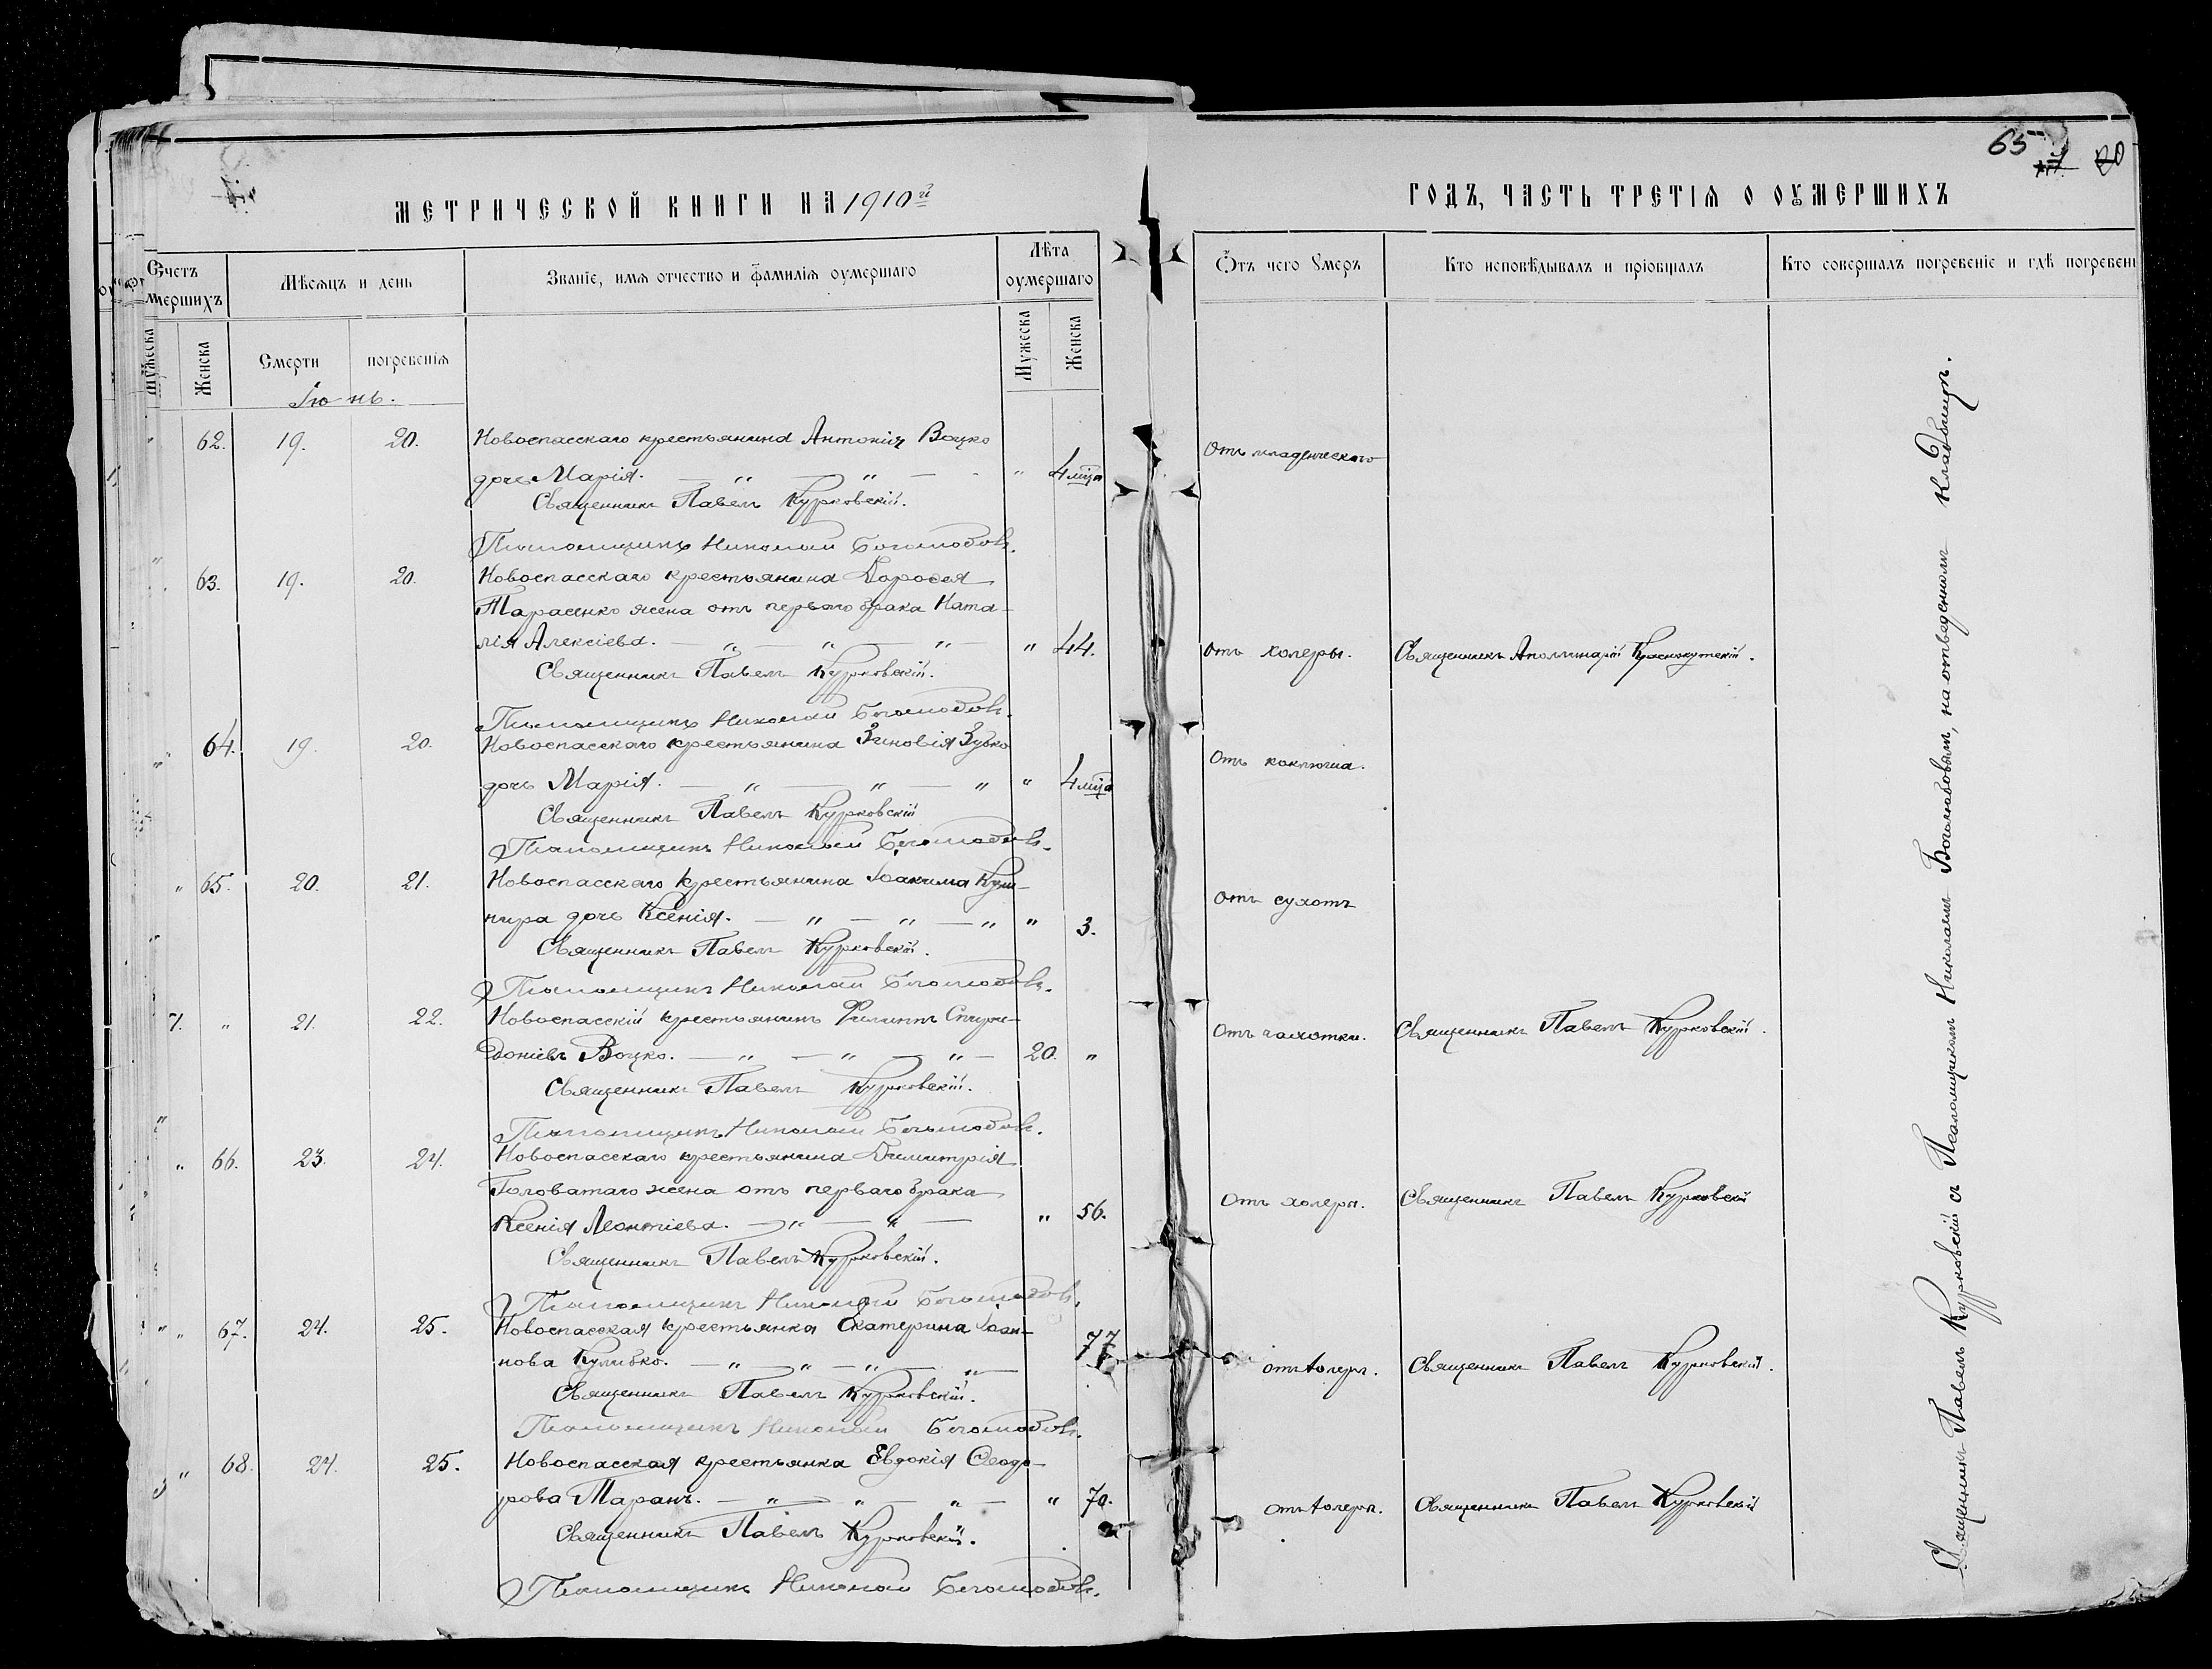 65
МЕТРИЧЕСКОЙ КНИГИ НА 1910й
ГОДЪ, ЧАСТЬ ТРЕТІЯ О ОУМЕРШИХЪ
Счетъ умершихъ
Мужеска
Женска
Мѣсяцъ и день
Смерти
погребенія
Званіе, имя отчество и фамилія оумершаго
Лѣта оумершаго
Мужеска
Женска
Отъ чего Умеръ
Кто исповѣдывалъ и пріобщалъ
Кто совершалъ погребеніе и гдѣ погребен
Іюнь.
" 62. 19. 20. Новоспасскаго крестьянина Антонія Воцко
дочь Марія. " 4 мца Отъ младенческаго
Священникъ Павелъ Курковскій.
Псаломщикъ Николай Боголюбовъ.
" 63. 19. 20. Новоспасскаго крестьянина Дорофея
Тарасенко жена отъ перваго брака Ната-
лія Алексіева. " 44. отъ холеры. Священникъ Аполлинарій Краснокутскій.
Священникъ Павелъ Курковскій.
Псаломщикъ Николай Боголюбовъ.
" 64. 19. 20. Новоспасскаго крестьянина Зиновія Зубко
дочь Марія. " 4 мца Отъ коклюша.
Священникъ Павелъ Курковскій
Псаломщикъ Николай Боголюбовъ.
" 65. 20. 21. Новоспасскаго крестьянина Іоакима Куш-
нира дочь Ксенія. " 3. Отъ сухотъ
Священникъ Павелъ Курковскій.
Псаломщикъ Николай Боголюбовъ.
" 21. 22. Новоспасскій крестьянинъ Филиппъ Спири-
доніевъ Воцко. 20. " Отъ чахотки. Священникъ Павелъ Курковскій.
Священникъ Павелъ Курковскій.
Псаломщикъ Николай Боголюбовъ.
" 66. 23. 24. Новоспасскаго крестьянина Димитрія
Головатаго жена отъ перваго брака
Ксенія Леонтіева. " 56. Отъ холеры. Священникъ Павелъ Курковскій
Священникъ Павелъ Курковскій.
Псаломщикъ Николай Боголюбовъ.
" 67. 24. 25. Новоспасская крестьянка Екатерина Іоан-
нова Кулибко. 77 отъ холеры. Священникъ Павелъ Курковскій.
Священникъ Павелъ Курковскій.
Псаломщикъ Николай Боголюбовъ.
" 68. 24. 25. Новоспасская крестьянка Евдокія Ѳеодо-
рова Таранъ. " 70. отъ холеры. Священникъ Павелъ Курковскій
Священникъ Павелъ Курковскій.
Псаломщикъ Николай Боголюбовъ.
Священникъ Павелъ Курковскій съ Псаломщикомъ Николаемъ Боголюбовымъ, на отведенномъ кладбищѣ.